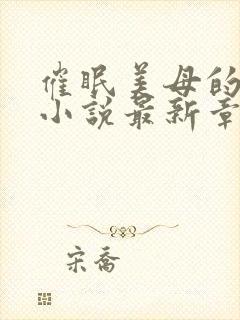 催眠美母的
小说最新章
宋乔